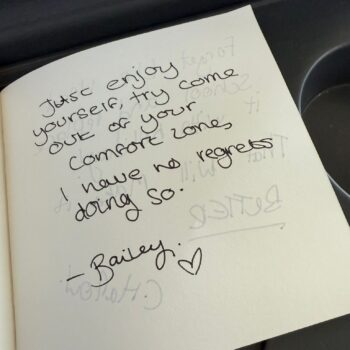 Just enjoy
yourself, try come
out of your
comfort zone,
I have no regrets
doing so.
- Bailey.
♡